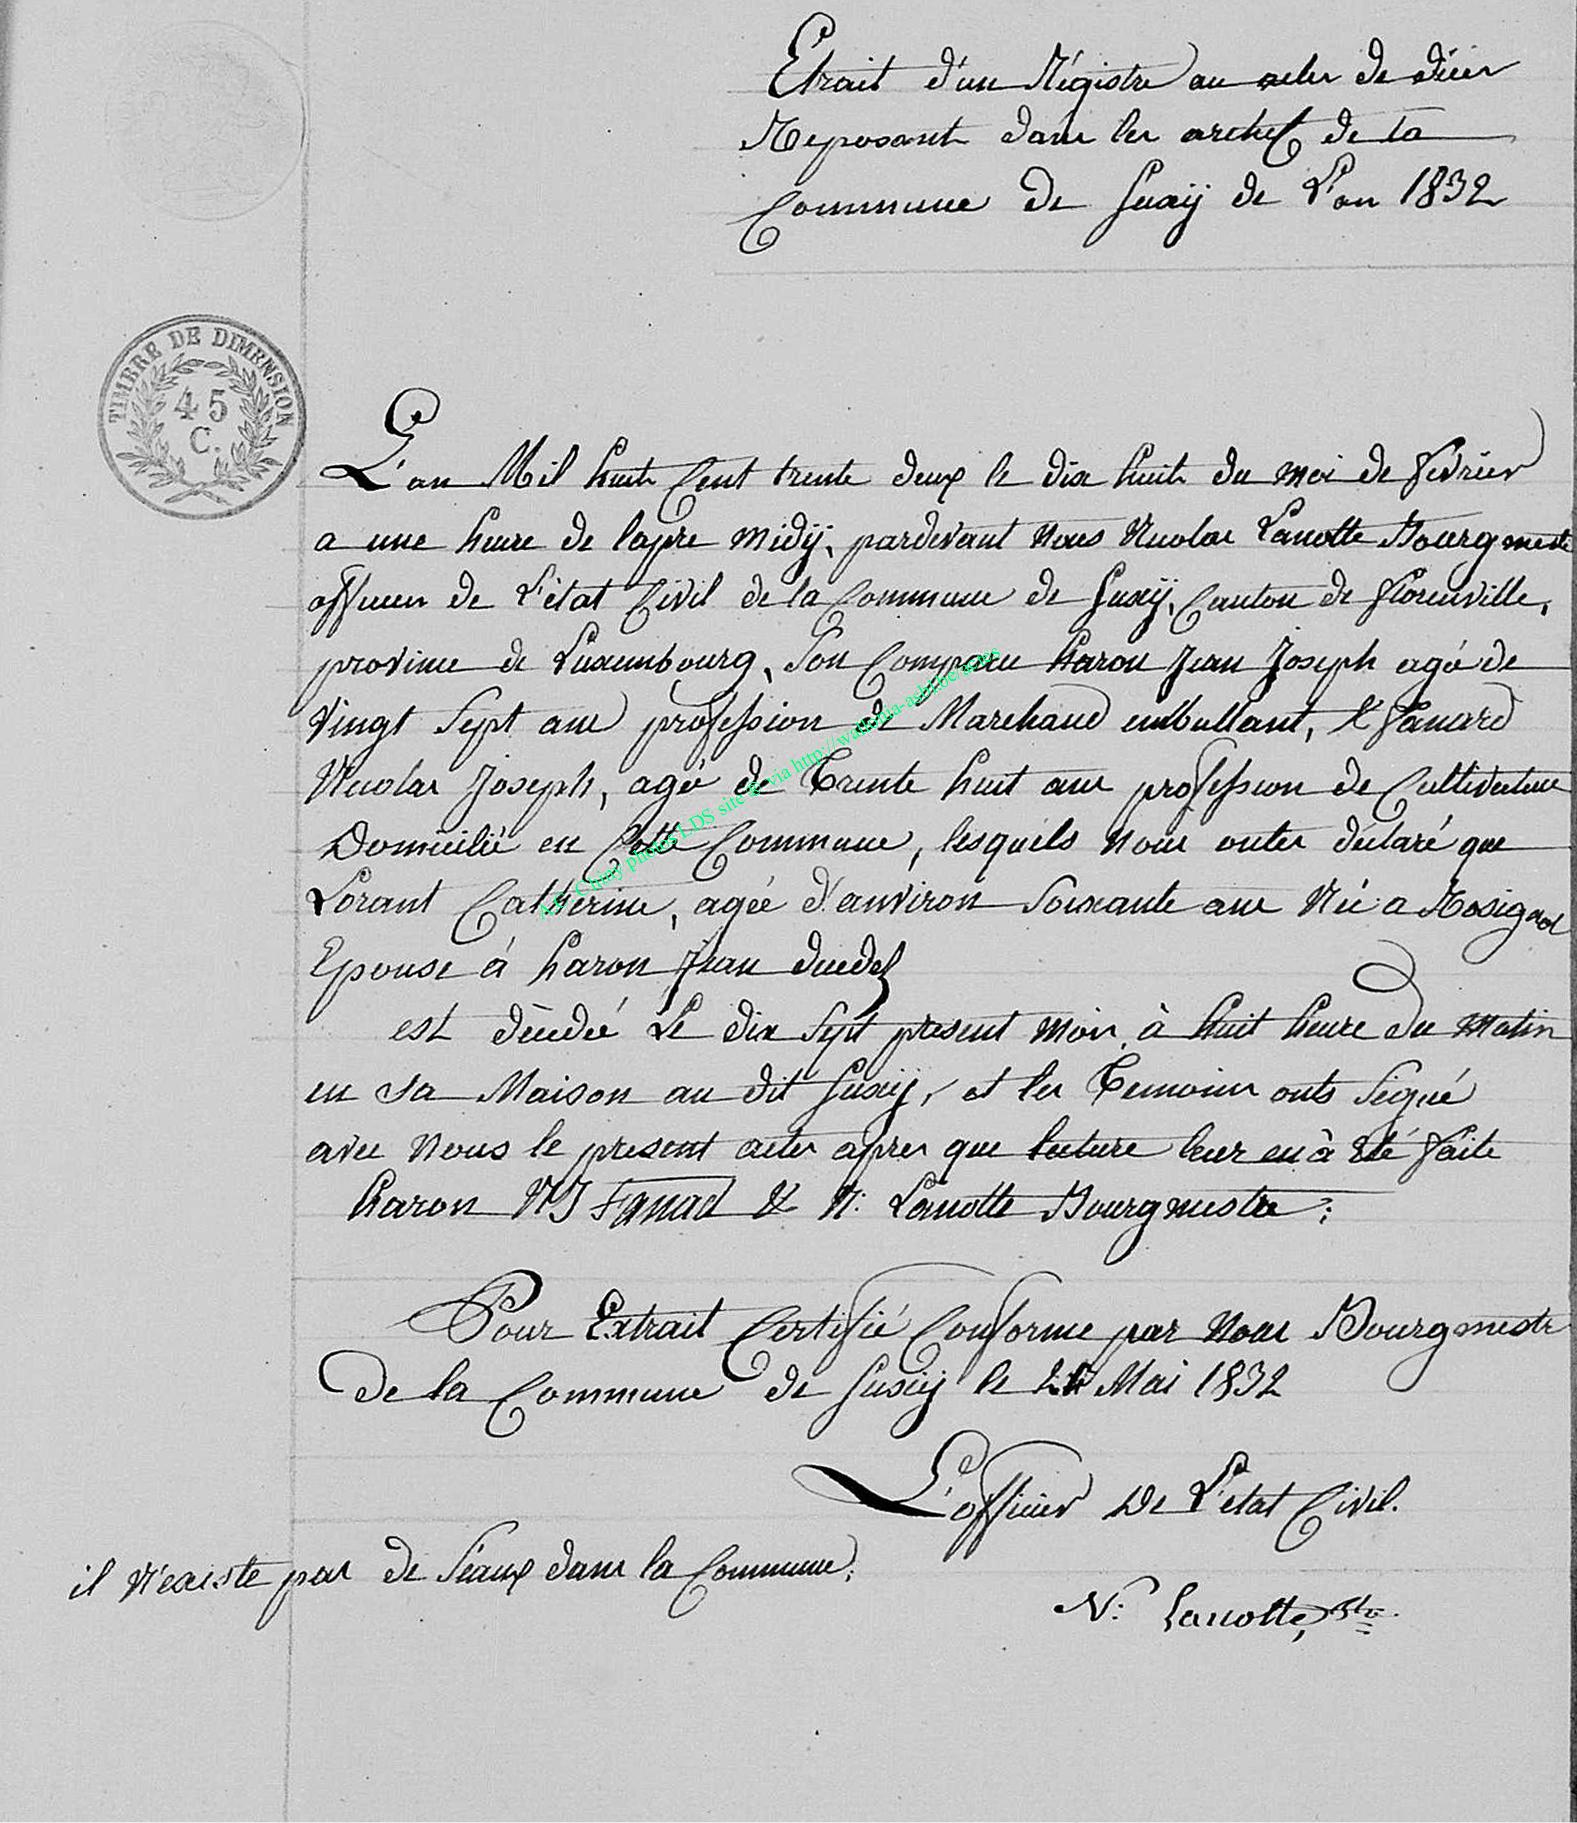 Etrait d'un Régistre au actes de décès
Reposant dans les archef de la
Commune de Suxÿ de L'an 1832
TIMBRE DE DIMENSION
45
C.
L'an Mil huit Cent trente deux le dix huit du moi de fevrier
a une heure de lapre midÿ, pardevant Nous Nicolas Lanotte Bourgmestre
officier de L'état Civil de la Commune de Suxÿ, Canton de florenville,
province de Luxembourg, Son Comparu haron Jean Joseph agé de
Vingt Sept ans profession de Marchand embullant, & fanard
Nicolas Joseph, agé de Trente huit ans profession de Cultivateur
Domicilié en Cette Commune, lesquels Nous ontes déclaré que
Lorant Catherine, agée d'anviron Soixante ans Née a Rosignol
Epouse à haron Jean
est décédé Le dix Sept present mois à huit heure du Matin
en sa Maison au dit Suxÿ, et les Temoins onts Signé
avec Nous le present actes apres que lecture leur en à Eté faite
haron NJ Fanad & N: Lanotte Bourgmestre:
Pour Extrait Certifié Conforme par Nous Bourgmestre
de la Commune de Suxÿ le Mai 1832
L'officier De L'etat Civil.
il N'existe pas de Séaux dans la Commune.
N: Lanotte,
A.E. Chiny photos LDS site & via http://wallonia-asbl.be/actes